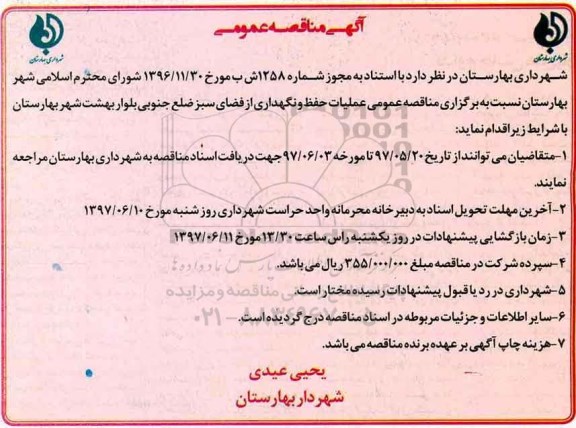 آگهی مناقصه عمومی
شهرداری بهارستان
شهرداری بهارستان
شهرداری بهارستان در نظر دارد با استناد به مجوز شماره ۱۲۵۸ش ب مورخ ۱۳۹۶/۱۱/۳۰ شورای محترم اسلامی شهر
بهارستان نسبت به برگزاری مناقصه عمومی عملیات حفظ و نگهداری از فضای سبز ضلع جنوبی بلوار بهشت شهر بهارستان
با شرایط زیر اقدام نماید:
۱-متقاضیان می توانند از تاریخ ۹۷/۰۵/۲۰ تا مورخه ۹۷/۰۶/۰۳ جهت دریافت اسناد مناقصه به شهرداری بهارستان مراجعه
نمایند.
۲-آخرین مهلت تحویل اسناد به دبیرخانه محرمانه واحد حراست شهرداری روز شنبه مورخ ۱۳۹۷/۰۶/۱۰
۳-زمان بازگشایی پیشنهادات در روز یکشنبه راس ساعت ۱۳/۳۰ مورخ ۱۳۹۷/۰۶/۱۱
۴-سپرده شرکت در مناقصه مبلغ ۳۵۵/۰۰۰/۰۰۰ ریال می باشد.
۵-شهرداری در رد یا قبول پیشنهادات رسیده مختار است.
۶-سایر اطلاعات و جزئیات مربوطه در اسناد مناقصه درج گردیده است.
۷-هزینه چاپ آگهی بر عهده برنده مناقصه می باشد.
یحیی عیدی
شهردار بهارستان